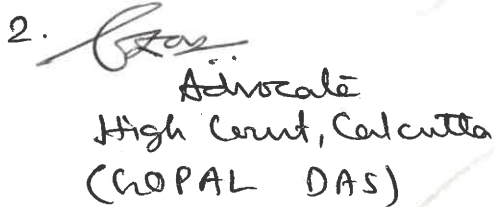 2.
Advocate
High Court, Calcutta
(GOPAL DAS)